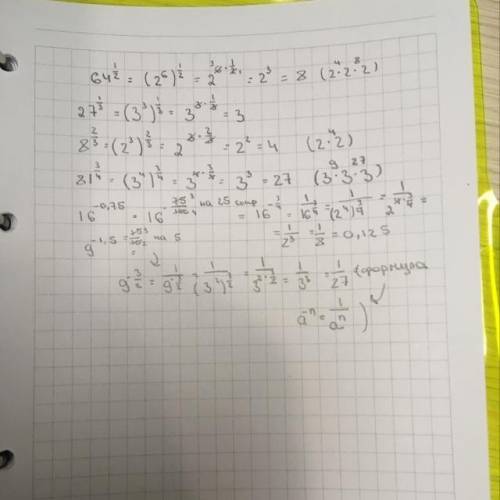 64^(1/2) = (2^6)^(1/2) = 2^(6·1/2) = 2^3 = 8 (2·2·2)
27^(1/3) = (3^3)^(1/3) = 3^(3·1/3) = 3
8^(2/3) = (2^3)^(2/3) = 2^(3·2/3) = 2^2 = 4 (2·2)
81^(3/4) = (3^4)^(3/4) = 3^(4·3/4) = 3^3 = 27 (3·3·3)
16^(-0,75) = 16^(-75/100) на 25 = 16^(-3/4) = 1/16^(3/4) = 1/(2^4)^(3/4) = 1/2^(4·3/4) =
= 1/2^3 = 1/8 = 0,125
9^(-1,5) = на 5
9^(-3/2) = 1/9^(3/2) = 1/(3^2)^(3/2) = 1/3^(2·3/2) = 1/3^3 = 1/27 (формула
a^(-n) = 1/a^n)